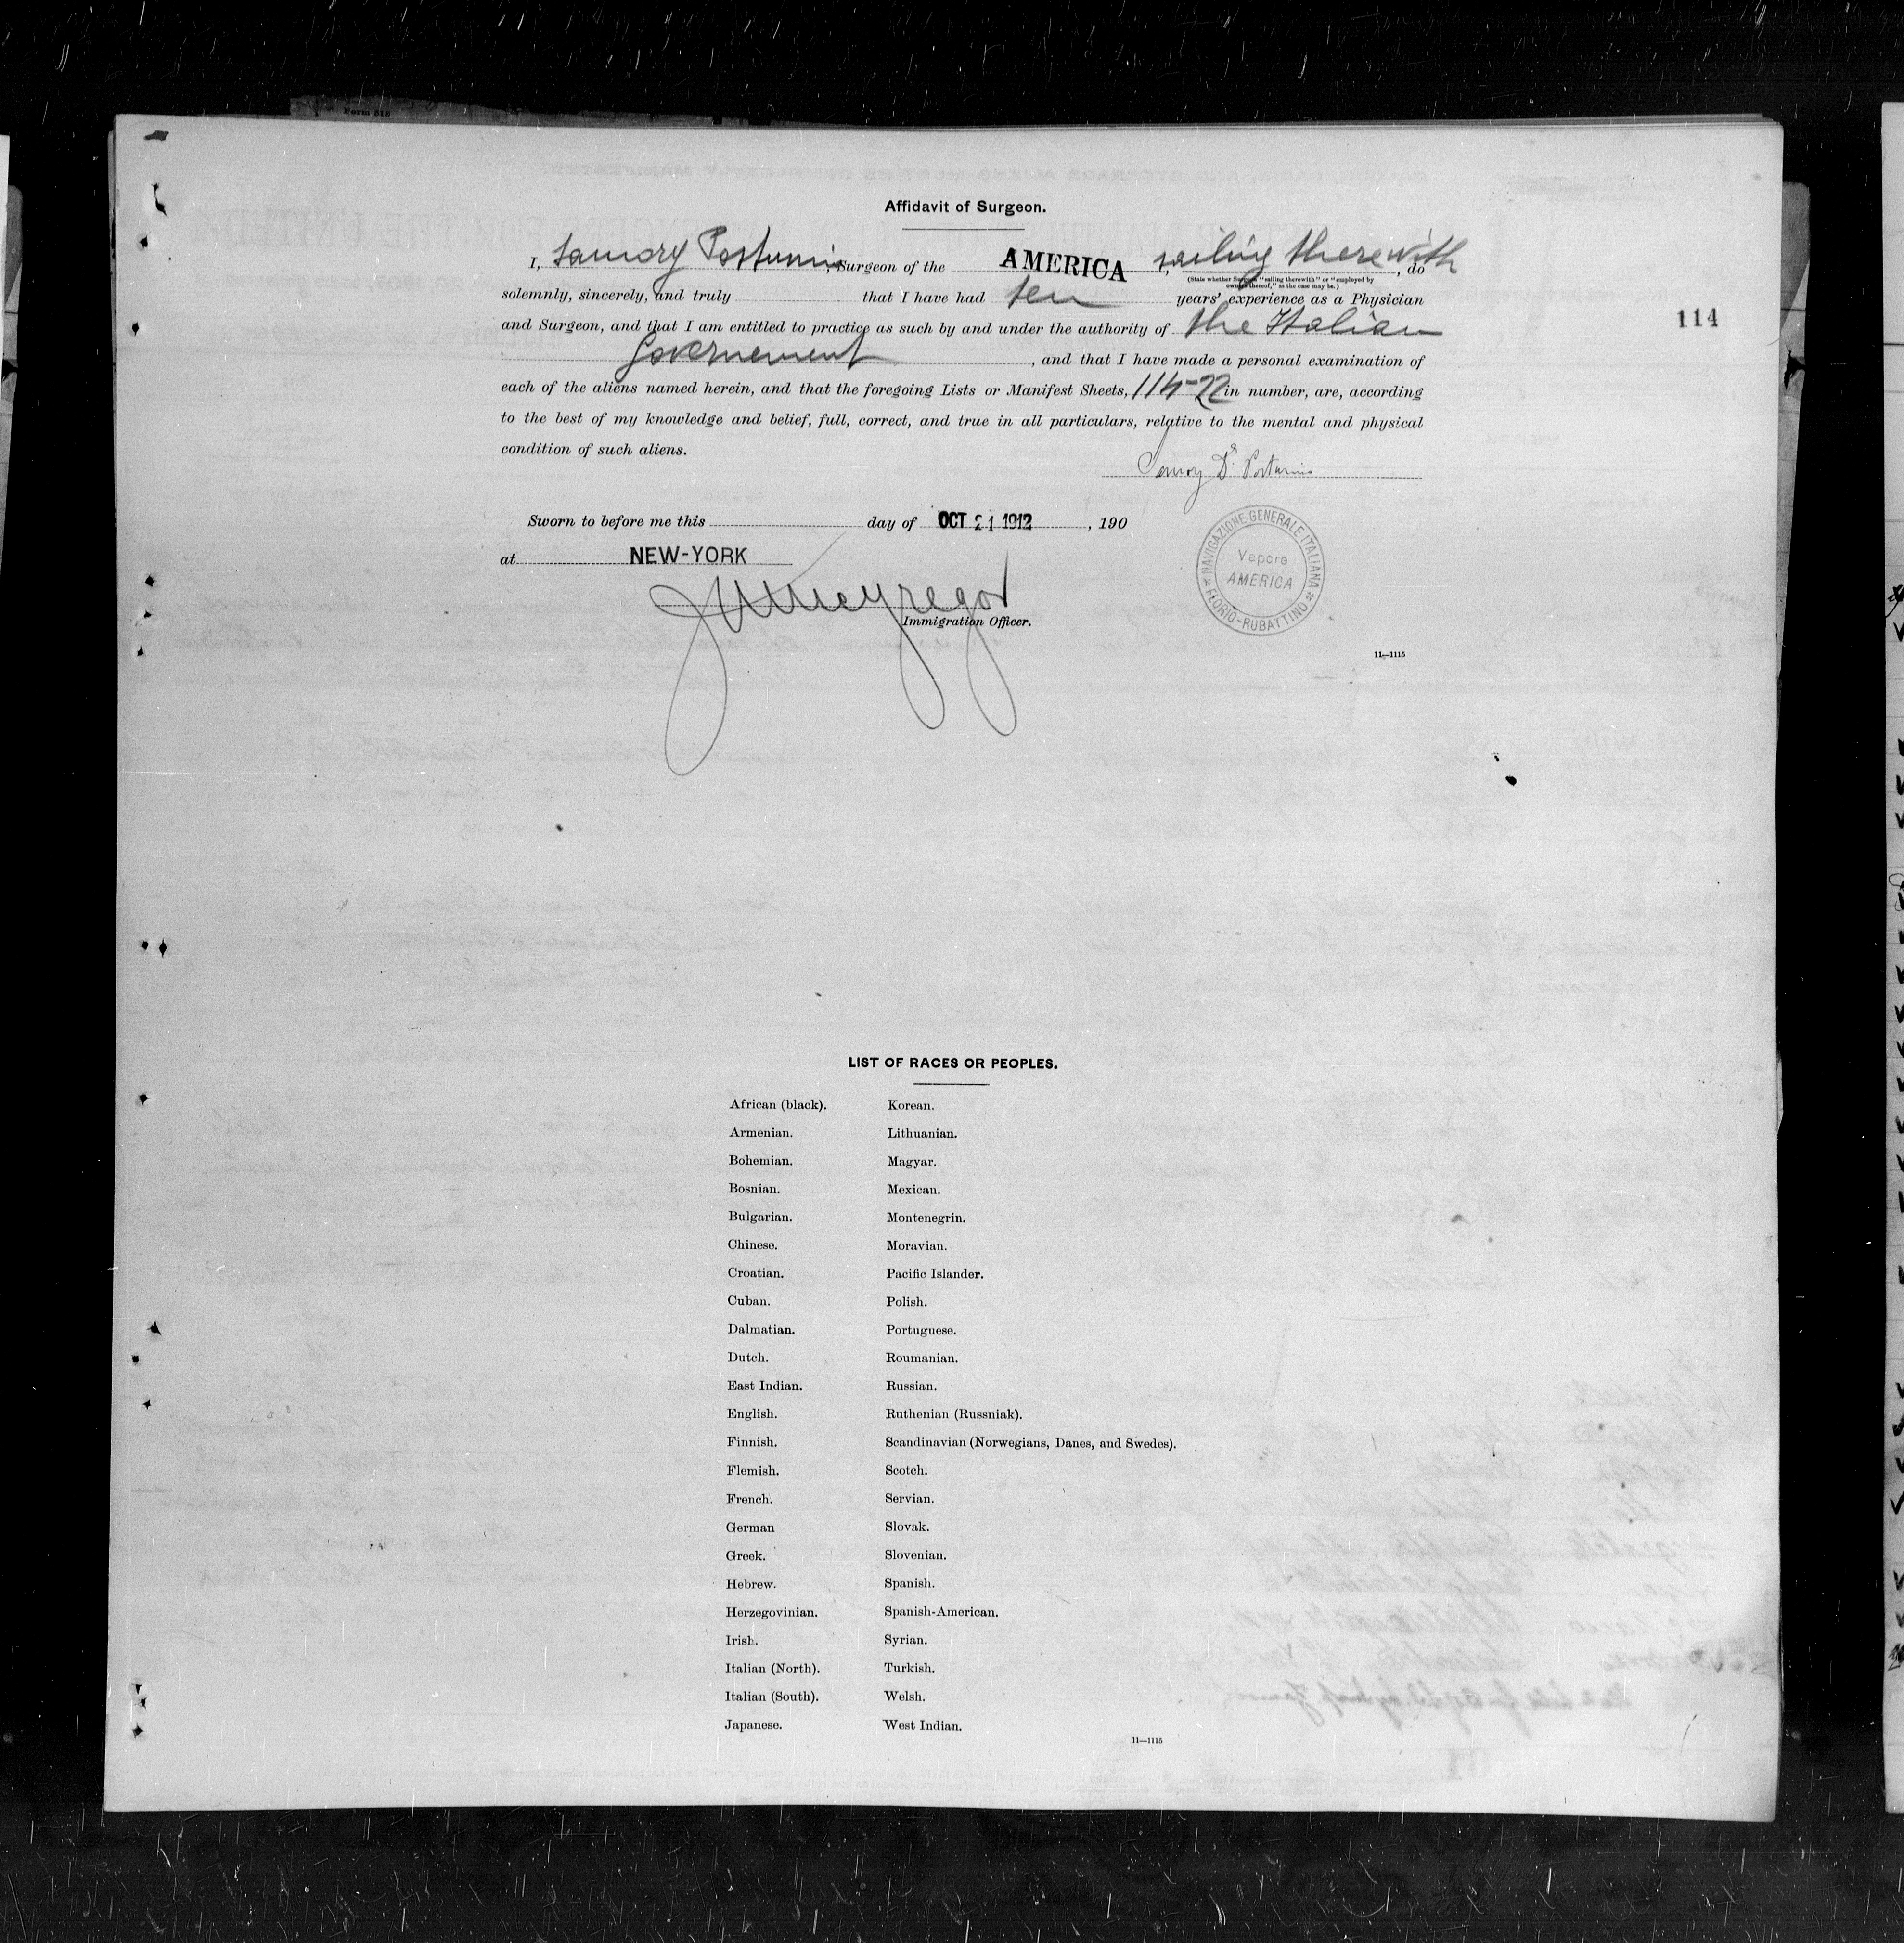 Form 516
Affidavit of Surgeon.
I, Postumio Surgeon of the AMERICA, sailing therewith, do
(State whether Surgeon "sailing therewith" or "employed by
owners thereof," as the case may be.)
solemnly, sincerely, and truly that I have had ten years' experience as a Physician
114
and Surgeon, and that I am entitled to practice as such by and under the authority of the Italian
Governement, and that I have made a personal examination of
each of the aliens named herein, and that the foregoing Lists or Manifest Sheets, in number, are, according
to the best of my knowledge and belief, full, correct, and true in all particulars, relative to the mental and physical
condition of such aliens.
Sworn to before me this day of OCT 21 1912, 190
at NEW-YORK
Immigration Officer.
NAVIGAZIONE GENERALE ITALIANA
Vapore
AMERICA
FLORIO-RUBATTINO
11—1115
LIST OF RACES OR PEOPLES.
African (black). Korean.
Armenian. Lithuanian.
Bohemian. Magyar.
Bosnian. Mexican.
Bulgarian. Montenegrin.
Chinese. Moravian.
Croatian. Pacific Islander.
Cuban. Polish.
Dalmatian. Portuguese.
Dutch. Roumanian.
East Indian. Russian.
English. Ruthenian (Russniak).
Finnish. Scandinavian (Norwegians, Danes, and Swedes).
Flemish. Scotch.
French. Servian.
German Slovak.
Greek. Slovenian.
Hebrew. Spanish.
Herzegovinian. Spanish-American.
Irish. Syrian.
Italian (North). Turkish.
Italian (South). Welsh.
Japanese. West Indian.
11—1115